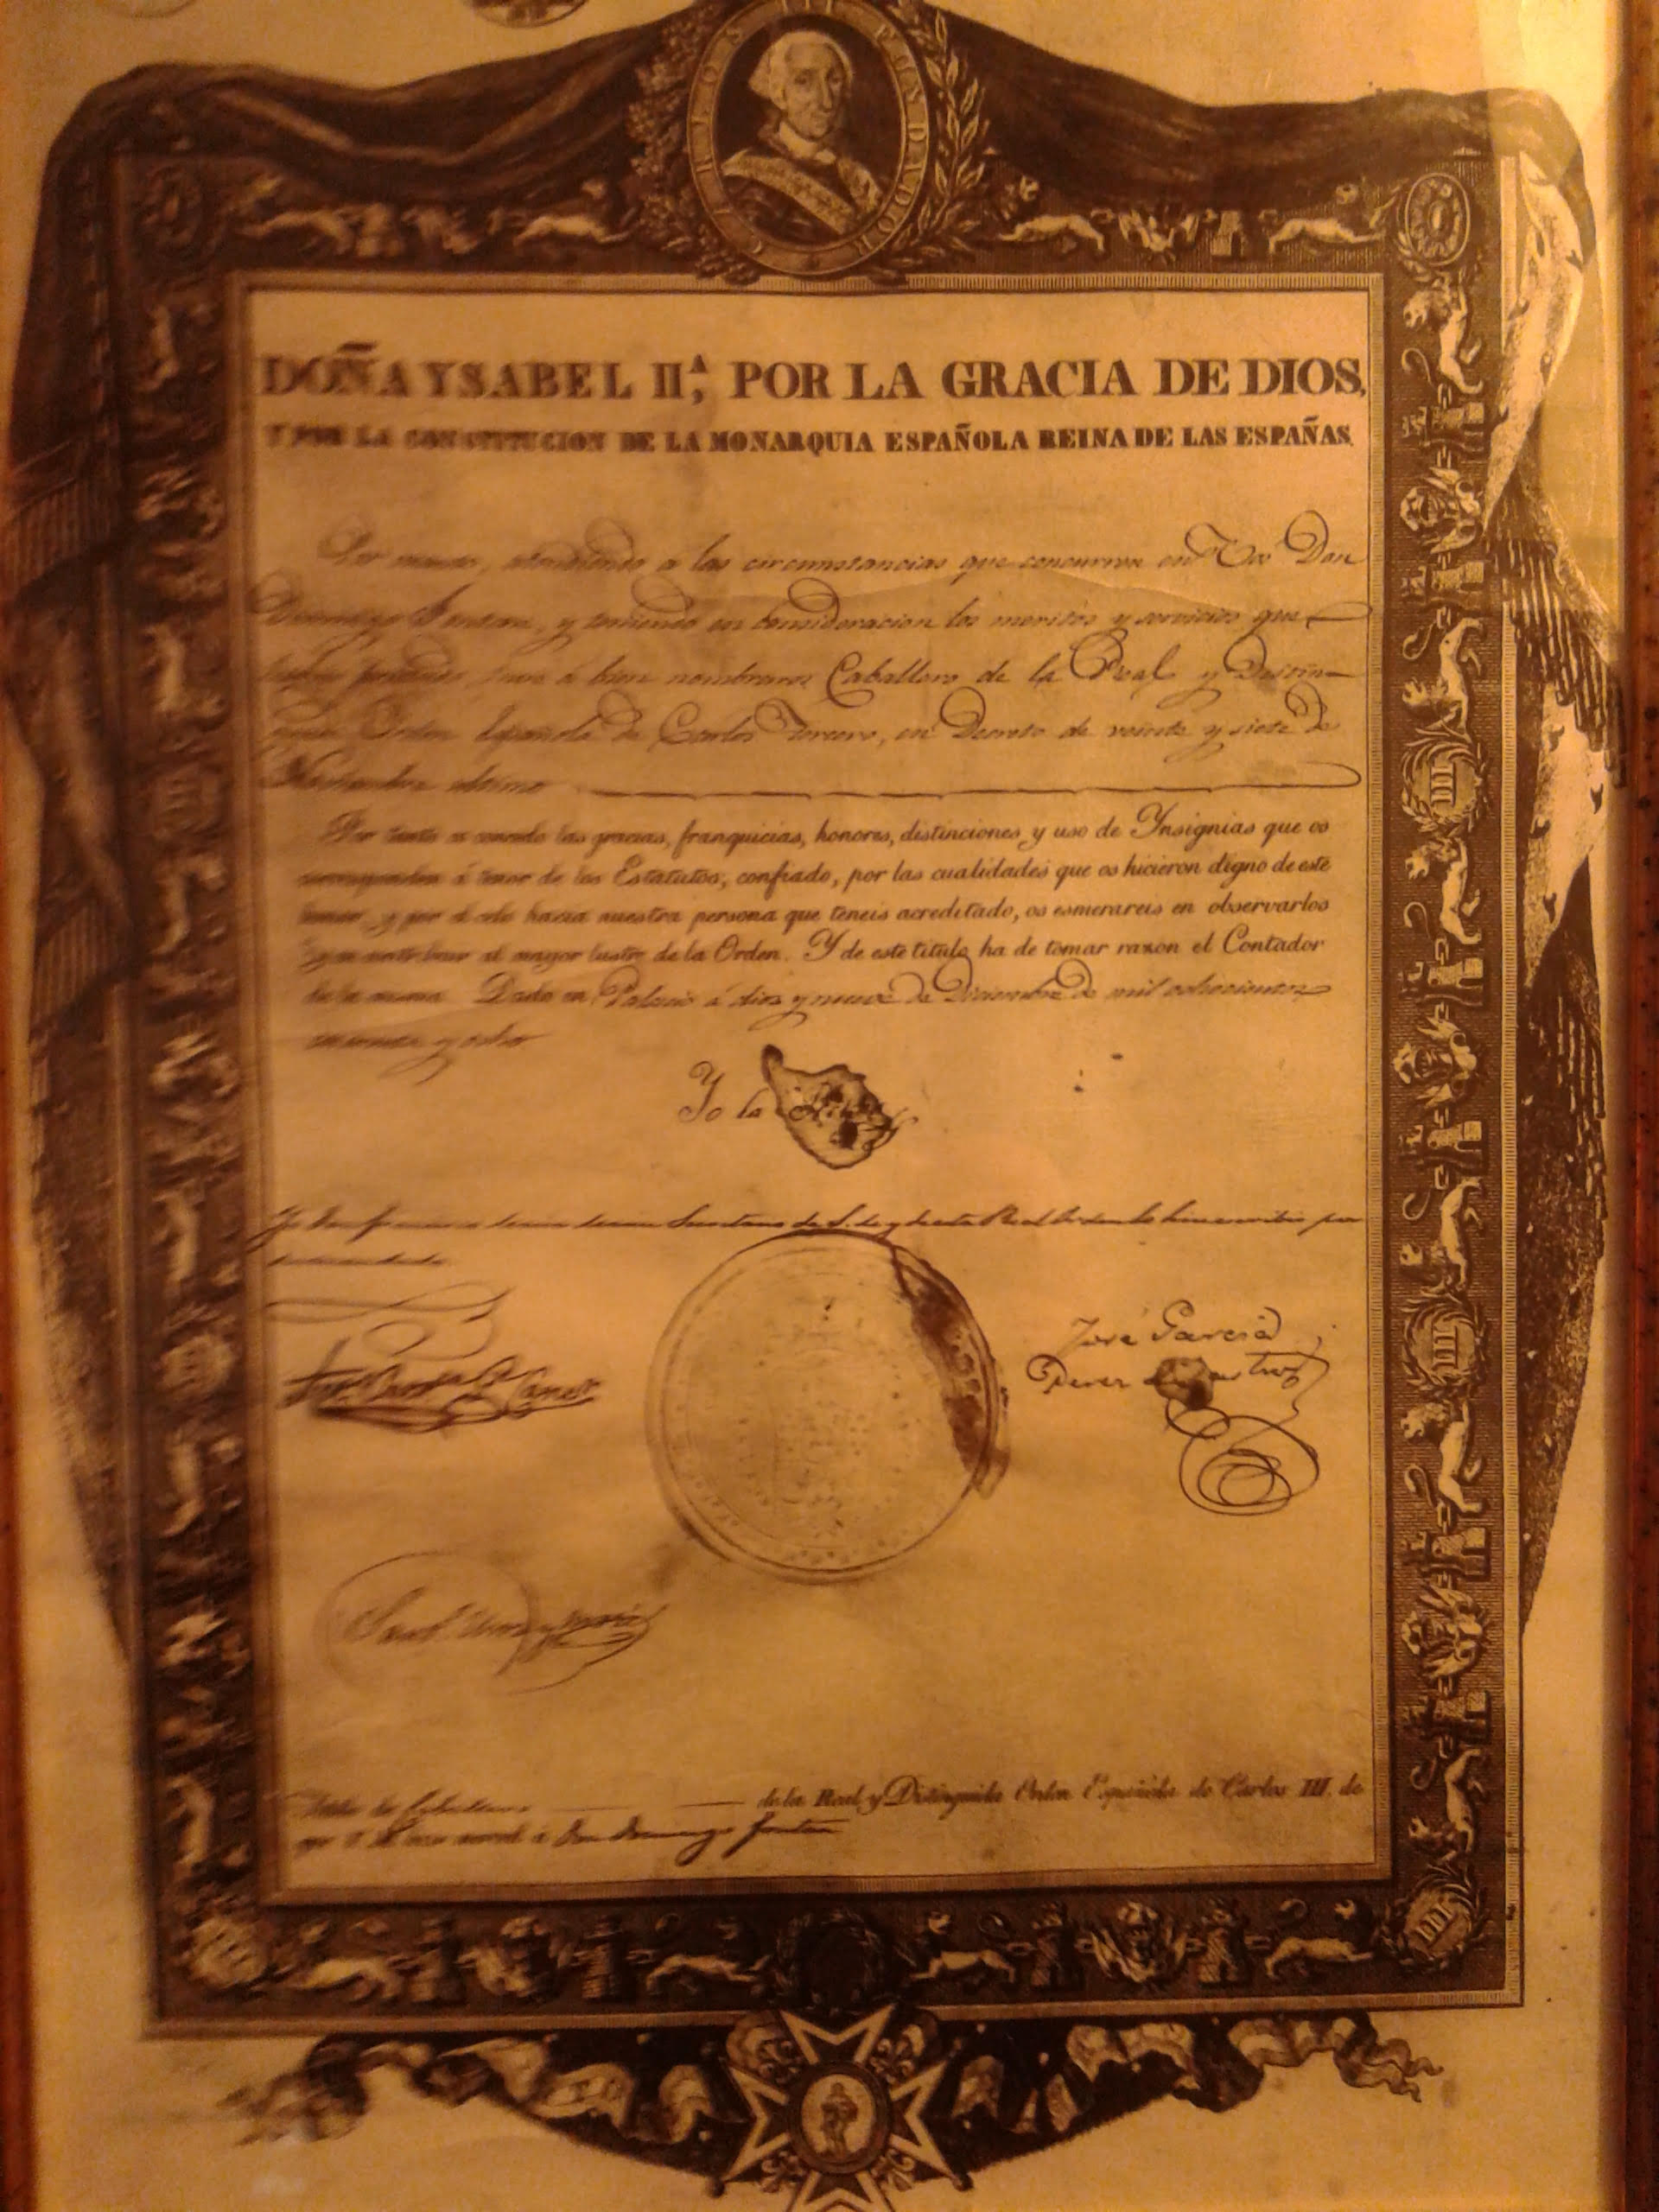 CARLOS III FUNDADOR
DOÑA YSABEL II.ª, POR LA GRACIA DE DIOS,
Y POR LA CONSTITUCION DE LA MONARQUIA ESPAÑOLA REINA DE LAS ESPAÑAS.
Por cuanto, atendiendo a las circunstancias que concurren en Vos Don
Domingo Fontan, y teniendo en consideracion los meritos y servicios que
tuve á bien nombraros Caballero de la Real y Distin-
guida Orden Española de Carlos Tercero, en Decreto de veinte y siete de
ultimo
Por tanto os concedo las gracias, franquicias, honores, distinciones y uso de Ynsignias que os
corresponden á tenor de los Estatutos; confiado, por las cualidades que os hicieron digno de este
honor, y por el celo hacia nuestra persona que teneis acreditado, os esmerareis en observarlos
y en contribuir al mayor lustre de la Orden. Y de este titulo ha de tomar razon el Contador
de la misma. Dado en Palacio á diez y nueve de Diciembre de mil ochocientos
y ocho
Yo la Reina
Secretario de S. M. y de esta Real Orden lo hice escribir por
su mandado
José Garcia
Perez
de la Real y Distinguida Orden Española de Carlos III. de
que V. M. hace merced á Don Domingo Fontan
III
III
III